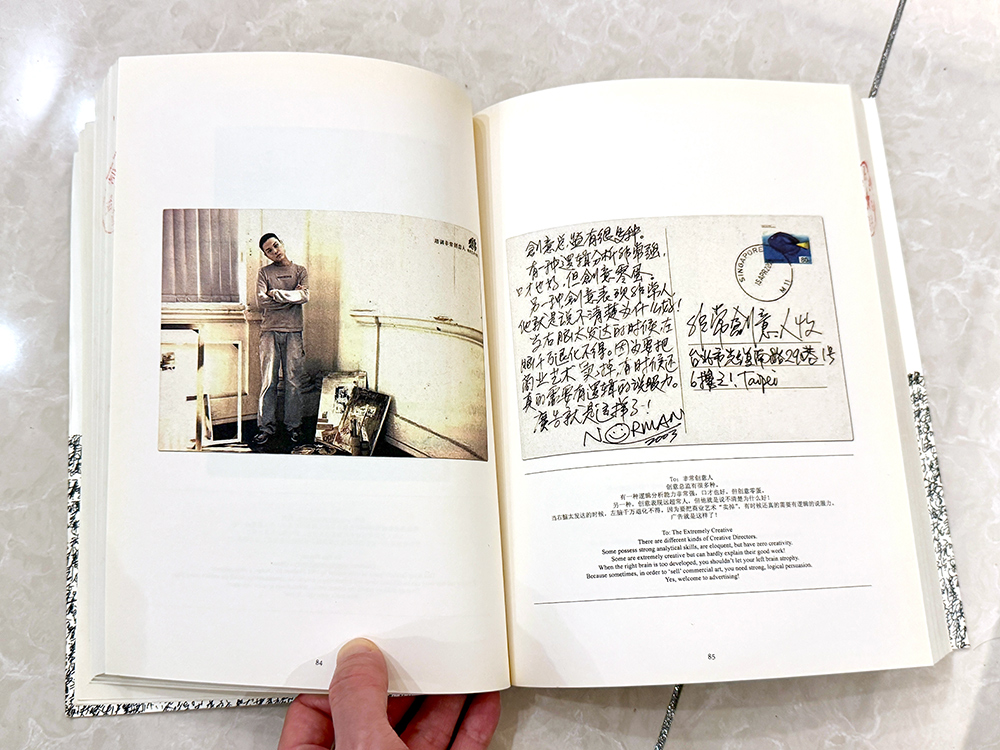 84
創意总监有很多种。
有一种逻辑分析非常强,
口才也好,但创意零蛋。
另一种创意表现非常人
他就是说不清楚为什么好!
当右脑太发达的时候,左
脑千万退化不得。因为要把
商业艺术"卖"掉,有时候还
真的需要有逻辑的说服力。
廣告就是这样了!
NORMAN
2003
SINGAPORE
M 11
非常創意人收
台北市光復南路290巷1号
6樓之1 Taipei
To: 非常创意人
创意总监有很多种。
有一种逻辑分析能力非常强,口才也好,但创意零蛋。
另一种,创意表现远超常人,但他就是说不清楚为什么好!
当右脑太发达的时候,左脑千万退化不得。因为要把商业艺术"卖掉",有时候还真的需要有逻辑的说服力。
广告就是这样了!
To: The Extremely Creative
There are different kinds of Creative Directors.
Some possess strong analytical skills, are eloquent, but have zero creativity.
Some are extremely creative but can hardly explain their good work!
When the right brain is too developed, you shouldn't let your left brain atrophy.
Because sometimes, in order to 'sell' commercial art, you need strong, logical persuasion.
Yes, welcome to advertising!
85